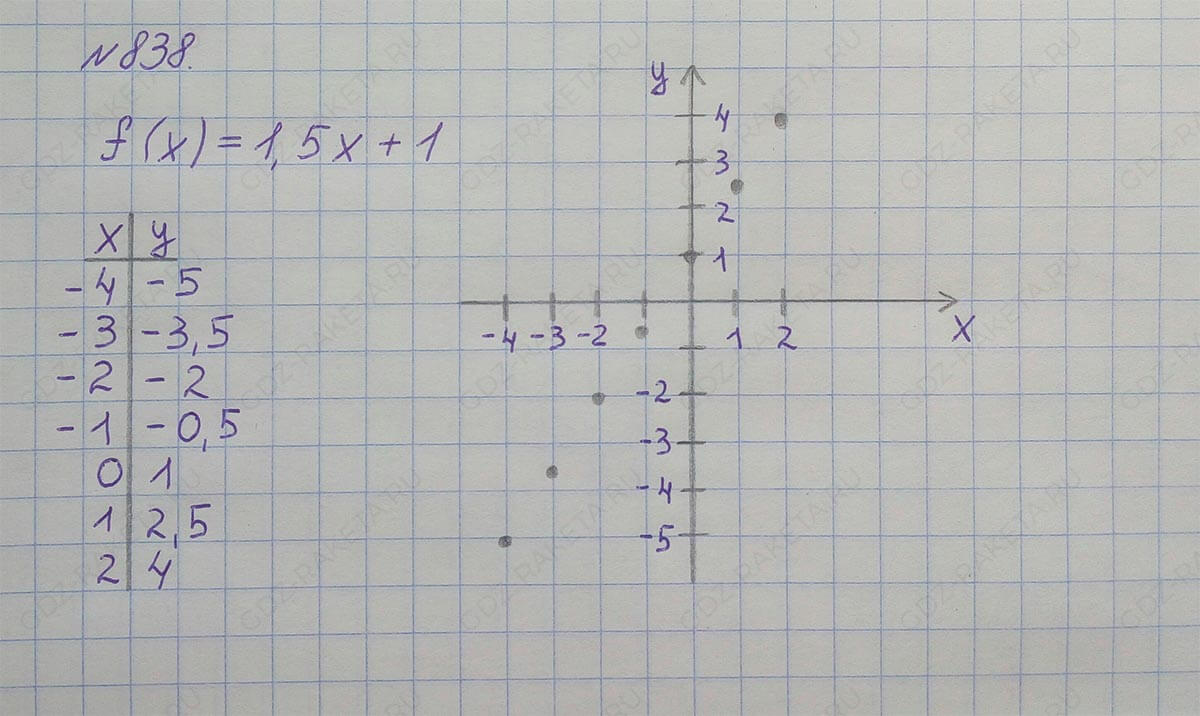 №838.
f(x) = 1,5x + 1
x y
-4 -5
-3 -3,5
-2 -2
-1 -0,5
0 1
1 2,5
2 4
y
4
3
2
1
-4 -3 -2 1 2 x
-2
-3
-4
-5
GDZ-RAKETA.RU